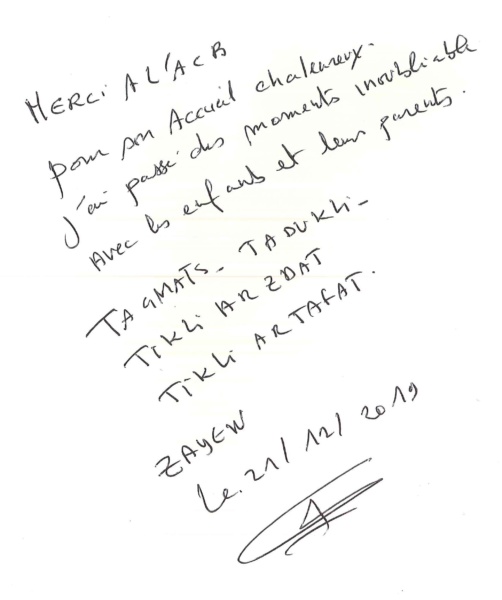 MERCi A L'ACB
pour son Accueil chaleureux.
J'ai passé des moments inoubliable
Avec les enfants et leur parents.
TAGMATS_ TADUKLi_
TiKLi AR ZDAT
TiKLi AR TAFAT.
ZAYEN
Le. 21/ 12/ 2019